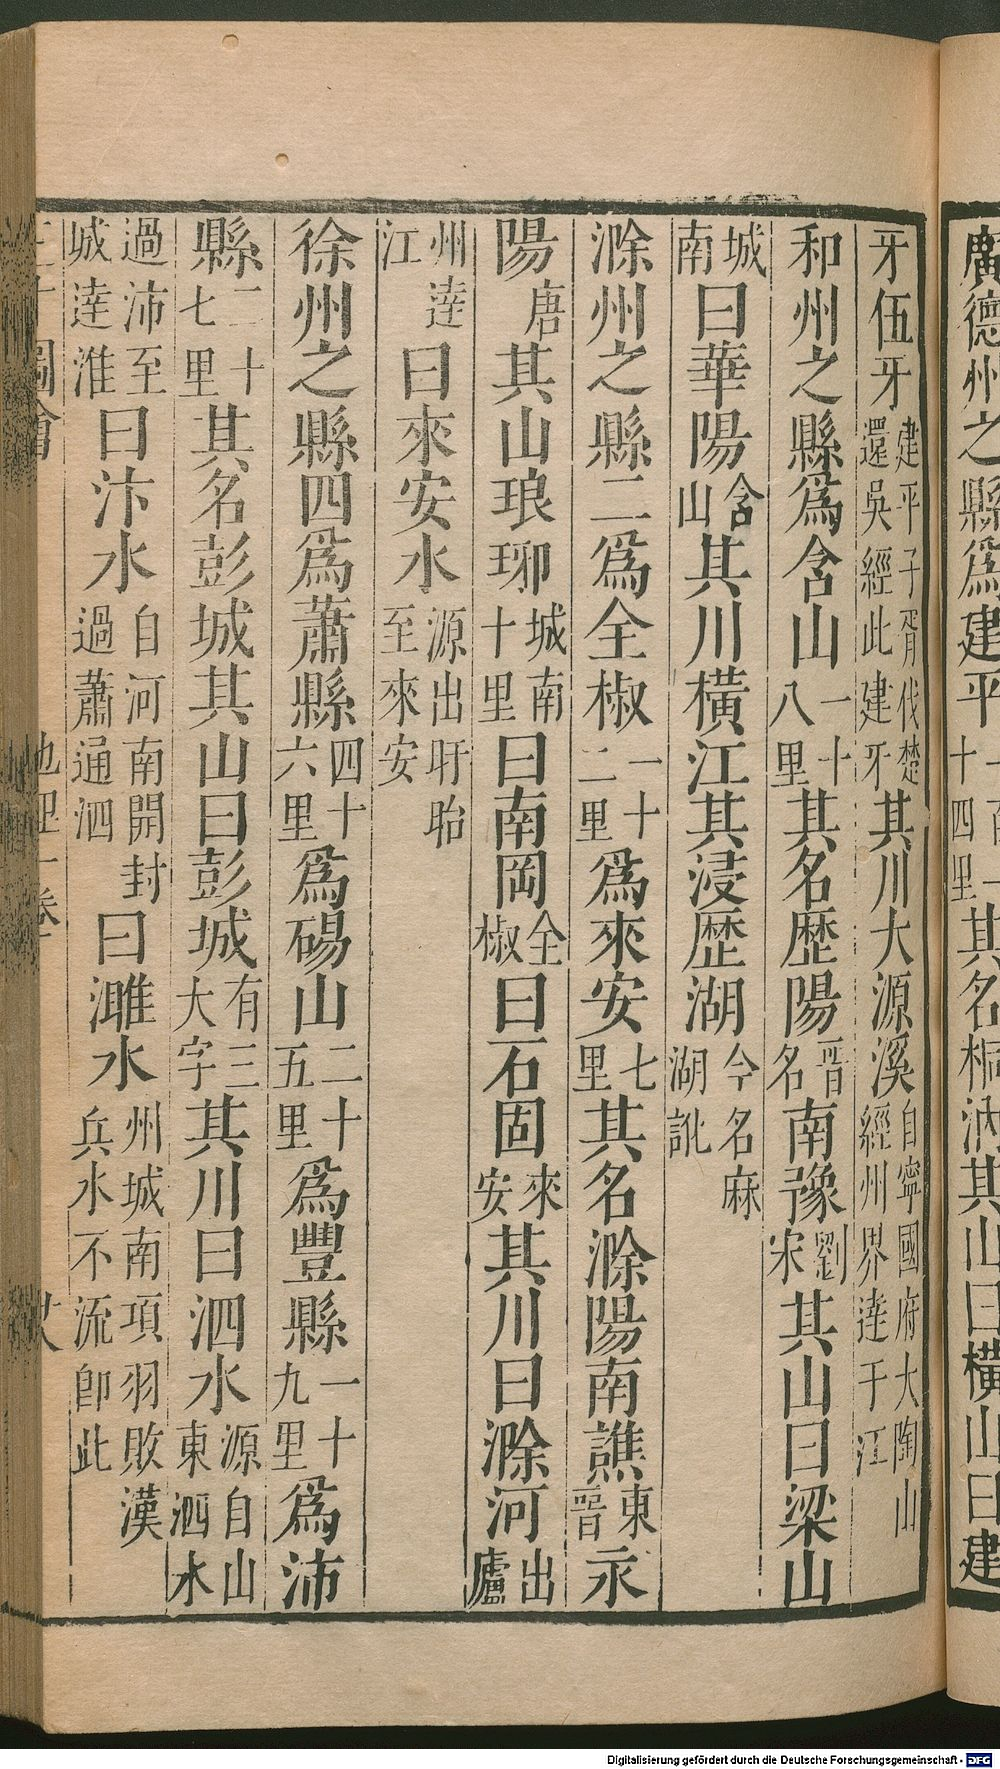 廣德州之縣爲建平一百一十四里其名桐汭其山曰橫山曰建
牙伍牙建平子胥伐楚還吳經此建牙其川大源溪自寧國府大陶山經州界達于江
和州之縣爲含山一十八里其名歷陽晉名南豫劉宋其山曰梁山
城南曰華陽含山其川橫江其浸歷湖今名麻湖訛
滁州之縣二爲全椒一十二里爲來安七里其名滁陽南譙東晉永
陽唐其山琅琊城南十里曰南岡全椒曰石固來安其川曰滁河出廬
州達江曰來安水源出盱眙至來安
徐州之縣四爲蕭縣四十六里爲碭山二十五里爲豐縣一十九里爲沛
縣二十七里其名彭城其山曰彭城有三大字其川曰泗水源自山東泗水
過沛至城達淮曰汴水自河南開封過蕭通泗曰濉水州城南項羽敗漢兵水不流卽此
圖會 地理一卷
Digitalisierung gefördert durch die Deutsche Forschungsgemeinschaft - DFG